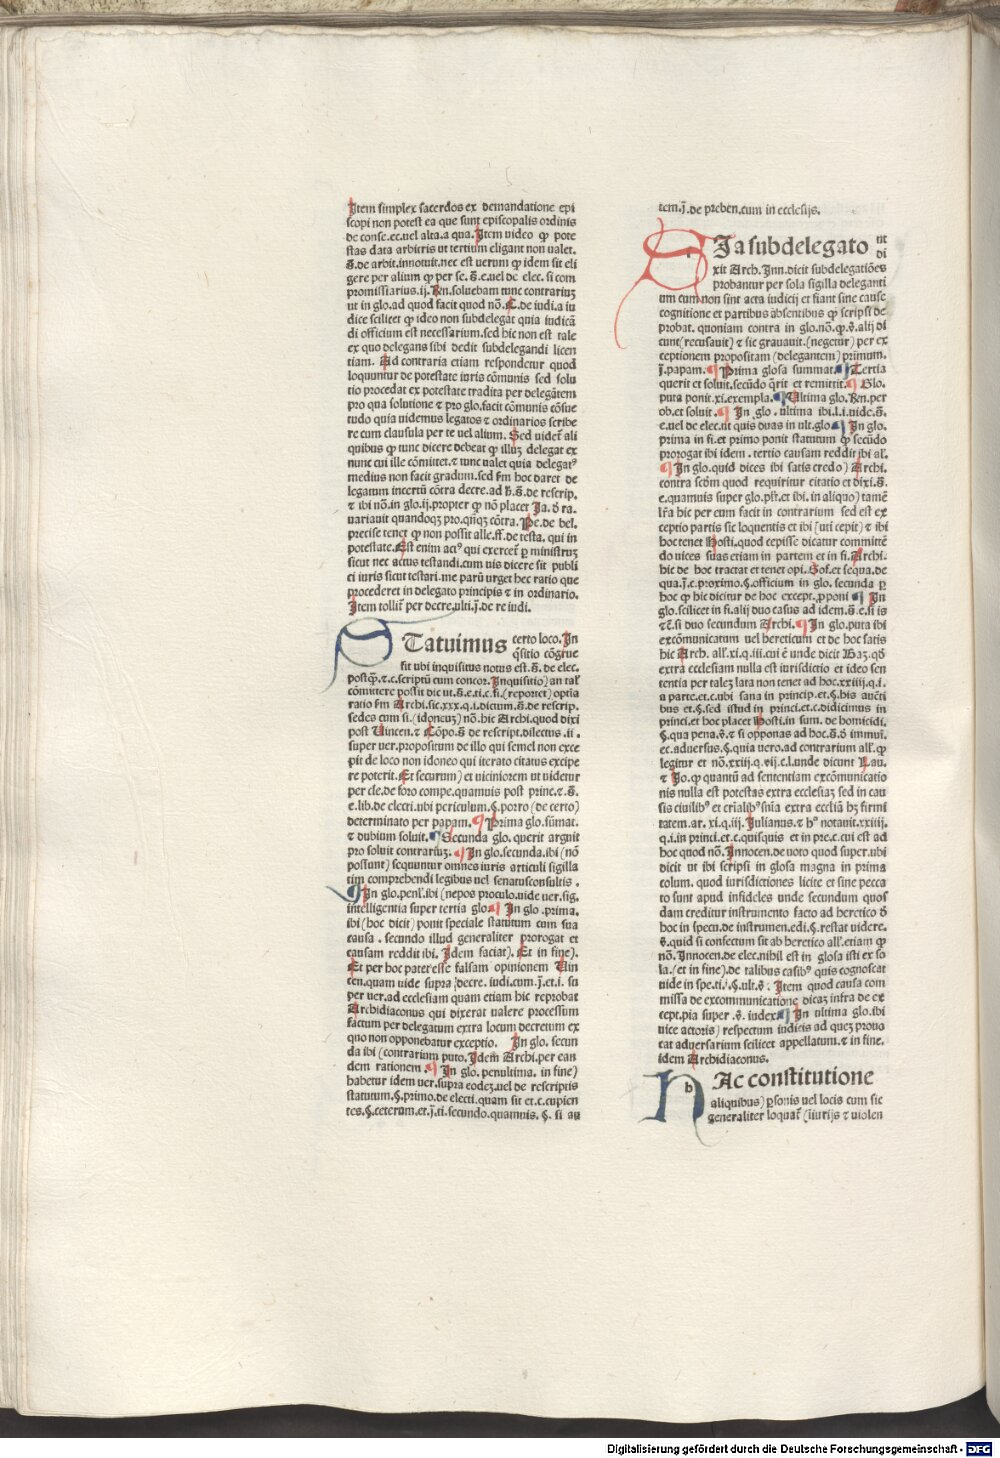 Item simplex sacerdos ex demandatione epi
scopi non potest ea que sunt episcopalis ordinis
de conse. ec. uel alta. a qua. Item uideo ꝙ pote
stas data arbitris ut tertium eligant non ualet.
s̄. de arbit. innotuit. nec est uerum ꝙ idem sit eli
gere per alium ꝙ per se. s̄. e. uel de elec. si com
promissarius. ij. Ren. soluebam tunc contrariuꝫ
ut in glo. ad quod facit quod nō. C. de iudi. a iu
dice scilicet ꝙ ideo non subdelegat quia iudicā
di officium est necessarium. sed hic non est tale
ex quo delegans sibi dedit subdelegandi licen
tiam. Ad contraria etiam respondetur quod
loquuntur de potestate iuris cōmunis sed solu
tio procedat ex potestate tradita per delegātem
pro qua solutione ⁊ pro glo. facit cōmunis cōsue
tudo quia uidemus legatos ⁊ ordinarios scribe
re cum clausula per te uel alium. Sed uidet̄ ali
quibus ꝙ tunc dicere debeat ꝙ illuꝫ delegat ex
nunc cui ille cōmittet. ⁊ tunc ualet quia delegatꝰ
medius non facit gradum. sed fm hoc daret de
legatum incertū cōtra decre. ad h̄. s̄. de rescrip.
⁊ ibi nō. in glo. ij. propter ꝙ nō placet Ja. ð ra.
uariauit quandoqꝫ pro. qn̄qꝫ cōtra. Pe. de bel.
precise tenet ꝙ non possit alle. ff. de testa. qui in
potestate. Est enim actꝰ qui exercet̄ ꝑ ministruꝫ
sicut nec actus testandi. cum uis dicere sit publi
ci iuris sicut testari. me parū urget hec ratio que
procederet in delegato principis ⁊ in ordinario.
Item tollit̄ per decre. ulti. j̄. de re iudi.
STatuimus certo loco. In
q̄sitio cōgrue
fit ubi inquisitus notus est. s̄. de elec.
postꝙ. ⁊. c. scriptū cum concor. Inquisitio) an tal̄
cōmittere possit dic ut. s̄. e. ti. c. fi. (reportet) optīa
ratio fm Archi. sic. xxx. q. i. dictum. s̄. de rescrip.
sedes cum si. (idoneuꝫ) nō. hic Archi. quod dixi
post Vincen. ⁊ Cōpo. s̄ de rescript. dilectus. ii.
super uer. propositum de illo qui semel non exce
pit de loco non idoneo qui iterato citatus excipe
re poterit. Et securum) et uiciniorem ut uidetur
per cle. de foro compe. quamuis post princ. ⁊. s̄.
e. lib. de electi. ubi periculum. §. porro (de certo)
determinato per papam. ¶ Prima glo. sūmat.
⁊ dubium soluit. ¶ Secunda glo. querit arguit
pro soluit contrariuꝫ. ¶ In glo. secunda. ibi (nō
possunt) sequuntur omnes iuris articuli sigilla
tim comprehendi legibus uel senatusconsultis.
¶ In glo. penl̄. ibi (nepos proculo. uide uer. sig.
intelligentia super tertia glo. ¶ In glo. prima.
ibi (hoc dicit) ponit speciale statutum cum sua
causa. secundo illud generaliter prorogat et
causam reddit ibi. Idem faciat). Et in fine).
Et per hoc patet esse falsam opinionem Vin
cen. quam uide supra decre. iudi. cum. j̄. et i. su
per uer. ad ecclesiam quam etiam hic reprobat
Archidiaconus qui dixerat ualere processum
factum per delegatum extra locum decretum ex
quo non opponebatur exceptio. In glo. secun
da ibi (contrarium puto. Idem̄ Archi. per ean
dem rationem. ¶ In glo. penultima. in fine)
habetur idem uer. supra eodeꝫ. uel de rescriptis
statutum. §. primo. de electi. quam sit et. c. cupien
tes. §. ceterum. et. j̄. ti. secundo. quamuis. §. si au
tem. j̄. de preben. cum in ecclesijs.
SJa subdelegato ut
di
xit Arch. Inn. dicit subdelegatiōes
probantur per sola sigilla deleganti
um cum non sint acta iudicij et fiant sine cause
cognitione et partibus absentibus ꝙ scripsi de
probat. quoniam contra in glo. nō. ꝙ. s̄. alij di
cunt (recusauit) ⁊ sic grauauit. (negetur) per ex
ceptionem propositam (delegantem) primum.
j̄. papam. ¶ Prima glosa summat. ¶ Tertia
querit et soluit. secūdo q̄rit et remittit. ¶ Glo.
puta ponit. xi. exempla. ¶ Vltima glo. Ren. per
ob. et soluit. ¶ In glo. ultima ibi. l. i. uide. s̄.
e. uel de elec. ut quis duas in ult. glo. ¶ In glo.
prima in fi. et primo ponit statutum ꝙ secūdo
prorogat ibi idem. tertio causam reddit ibi al̄.
¶ In glo. quid dices ibi satis credo) Archi.
contra scd̄m quod requiritur citatio et dixi. s̄.
e. quamuis super glo. pn̄. et ibi. in aliquo) tamē
lr̄a hic per eum facit in contrarium sed est ex
ceptio partis sic loquentis et ibi (uti cepit) ⁊ ibi
hoc tenet Hosti. quod cepisse dicatur committē
do uices suas etiam in partem et in fi. Archi.
hic de hoc tractat et tenet opi. Gof. et sequa. de
qua. j̄. c. proximo. §. officium in glo. secunda ꝑ
hoc ꝙ hic dicitur de hoc except. ꝓponi ¶ In
glo. scilicet in fi. alij duo casus ad idem. s̄. e. si is
⁊ c̄. si duo secundum Archi. ¶ In glo. puta ibi
excōmunicatum uel hereticum et de hoc satis
hic Arch. all̄. xi. q. iii. cui ē unde dicit Baꝫ. qð
extra ecclesiam nulla est iurisdictio et ideo sen
tentia per taleꝫ lata non tenet ad hoc. xxiiij. q. i.
a parte. et. c. ubi sana in princip. et. §. his aucti
bus et. §. sed istud in princi. et. c. didicimus in
princi. et hoc placet Hosti. in sum. de homicidi.
§. qua pena. s̄. ⁊ si opponas ad hoc. s̄. ð immūi.
ec. aduersus. §. quia uero. ad contrarium all̄. ꝙ
legitur et nō. xxiij. q. vij. c. l. unde dicunt Lau.
⁊ Jo. ꝙ quantū ad sententiam excōmunicatio
nis nulla est potestas extra ecclesiaꝫ sed in cau
sis ciuilibꝰ et crīalibꝰ sn̄ia extra eccliā hꝫ firmi
tatem. ar. xi. q. iij. Julianus. ⁊ hꝰ notauit. xxiiij.
q. i. in princi. et. c. quisquis et in pre. c. cui est ad
hoc quod nō. Innocen. de uoto quod super. ubi
dicit ut ibi scripsi in glosa magna in prima
colum. quod iurisdictiones licite et sine pecca
to sunt apud infideles unde secundum quos
dam creditur instrumento facto ad heretico ð
hoc in specu. de instrumen. edi. §. restat uidere.
s̄. quid si confectum sit ab heretico all̄. etiam ꝙ
nō. Innocen. de elec. nihil est in glosa isti ex so
la. (et in fine). de talibus casibꝰ quis cognoscat
uide in spe. ti. §. ult. s̄. Item quod causa com
missa de excommunicatione dicaꝫ infra de ex
cept. pia super. s̄. iudex. ¶ In ultima glo. ibi
uice actoris) respectum iudicis ad queꝫ proua
cat aduersarium scilicet appellatum. ⁊ in fine.
idem Archidiaconus.
HAc constitutione
aliquibus) ꝑsonis uel locis cum sic
generaliter loquat̄ (iīurijs ⁊ uiolen
Digitalisierung gefördert durch die Deutsche Forschungsgemeinschaft - DFG